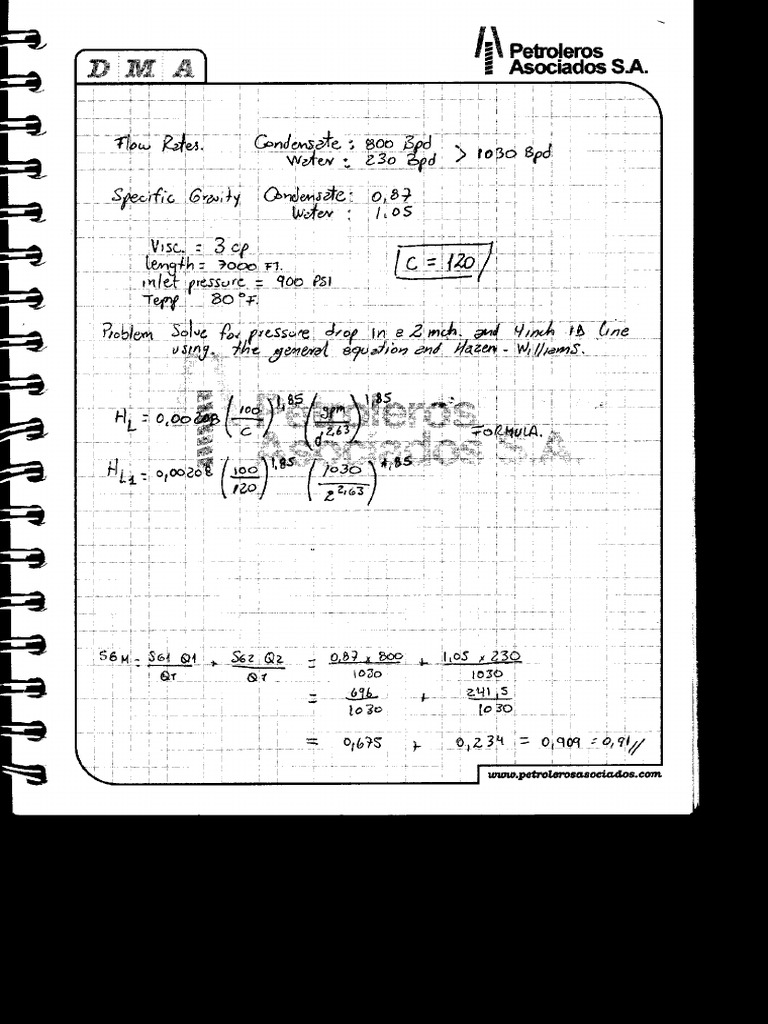 Petroleros
Asociados S.A.
D M A
Flow Rates. Condensate : 800 Bpd
Water : 230 Bpd > 1030 Bpd
Specific Gravity Condensate : 0,87
Water : 1.05
Visc. = 3 cp
length = 7000 FT.
inlet pressure = 900 PSI
Temp 80 °F.
C = 120
Problem Solve for pressure drop in a 2 inch. and 4 inch ID line
using. the general equation and Hazen - Williams.
HL = 0,00208 (100/C)^1,85 (gpm/d^2,63)^1,85 FORMULA.
Petroleros
Asociados S.A.
HL1 = 0,00208 (100/120)^1,85 (1030/2^2,63)^1,85
SGM = SG1 Q1/QT + SG2 Q2/QT = 0,87 x 800/1030 + 1,05 x 230/1030
= 696/1030 + 241,5/1030
= 0,675 + 0,234 = 0,909 = 0,91//
www.petrolerosasociados.com